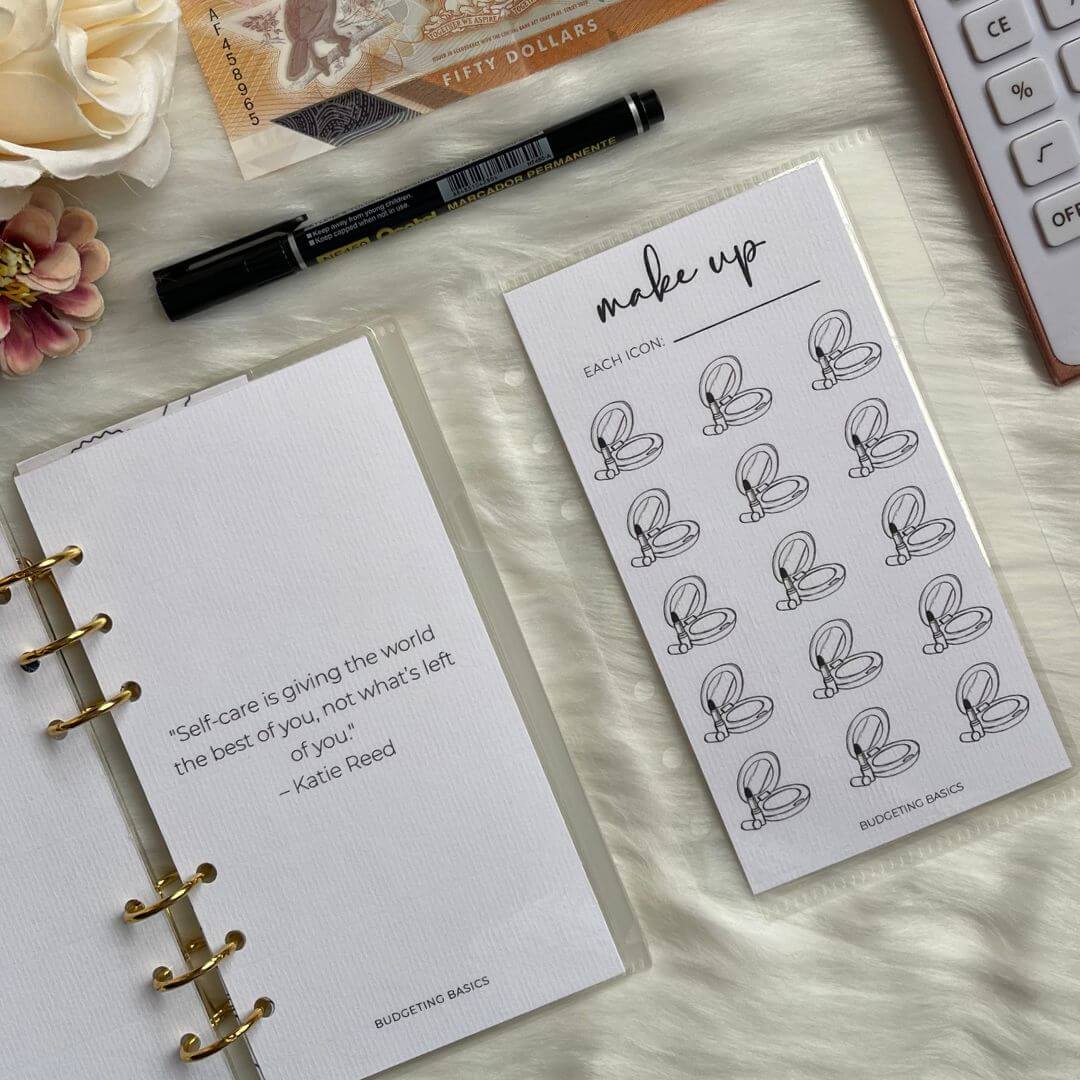 AF458965
TOGETHER WE ASPIRE
FIFTY DOLLARS
CE
%
√
OFF
Keep away from young children.
Keep capped when not in use.
MARCADOR PERMANENTE
make up
EACH ICON:
BUDGETING BASICS
"Self-care is giving the world
the best of you, not what's left
of you."
– Katie Reed
BUDGETING BASICS